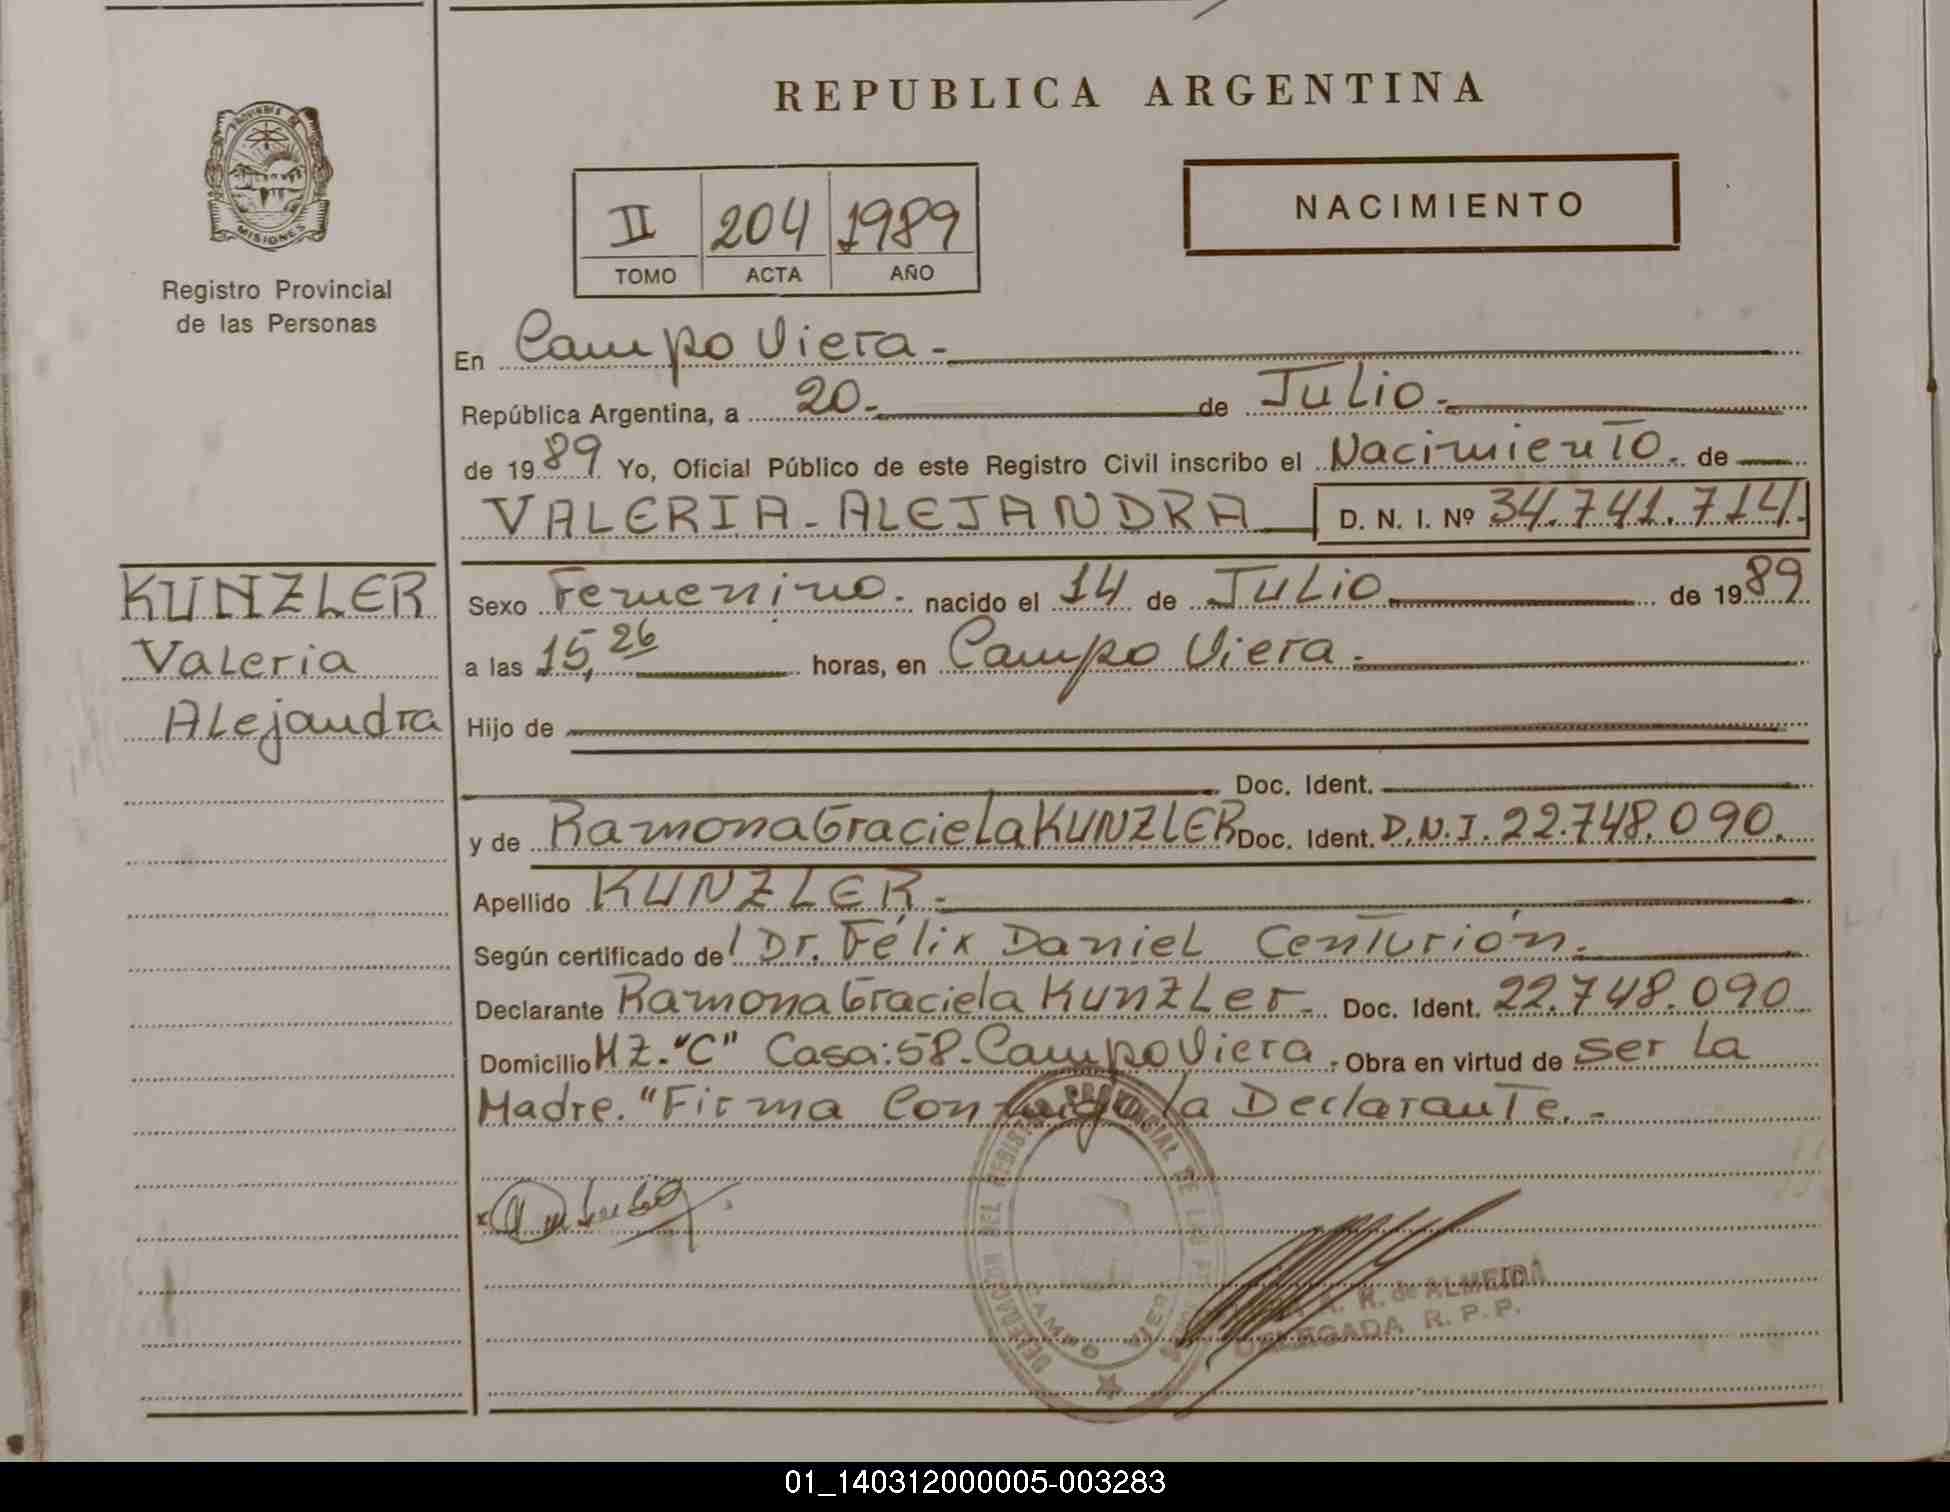 REPUBLICA ARGENTINA
PROVINCIA DE
MISIONES
Registro Provincial
de las Personas
II 204 1989
TOMO ACTA AÑO
NACIMIENTO
En Campo Viera.-
República Argentina, a 20.- de Julio.-
de 1989 Yo, Oficial Público de este Registro Civil inscribo el Nacimiento. de
VALERIA-ALEJANDRA D. N. I. Nº 34.741.714.
KUNZLER
Valeria
Alejandra
Sexo Femenino. nacido el 14 de Julio de 1989
a las 15,26 horas, en Campo Viera.-
Hijo de
Doc. Ident.
y de Ramona Graciela KUNZLER Doc. Ident. D.N.I. 22.748.090.
Apellido KUNZLER.-
Según certificado del Dr. Félix Daniel Centurión.-
Declarante Ramona Graciela Kunzler.- Doc. Ident. 22.748.090
Domicilio MZ."C" Casa:58.-Campo Viera. Obra en virtud de ser la
Madre."Firma Conmigo la Declarante.-
DELEGACION DEL REGISTRO PROVINCIAL DE LAS
CAMPO VIERA
A. R. de ALMEIDA
DELEGADA R. P. P.
01_140312000005-003283